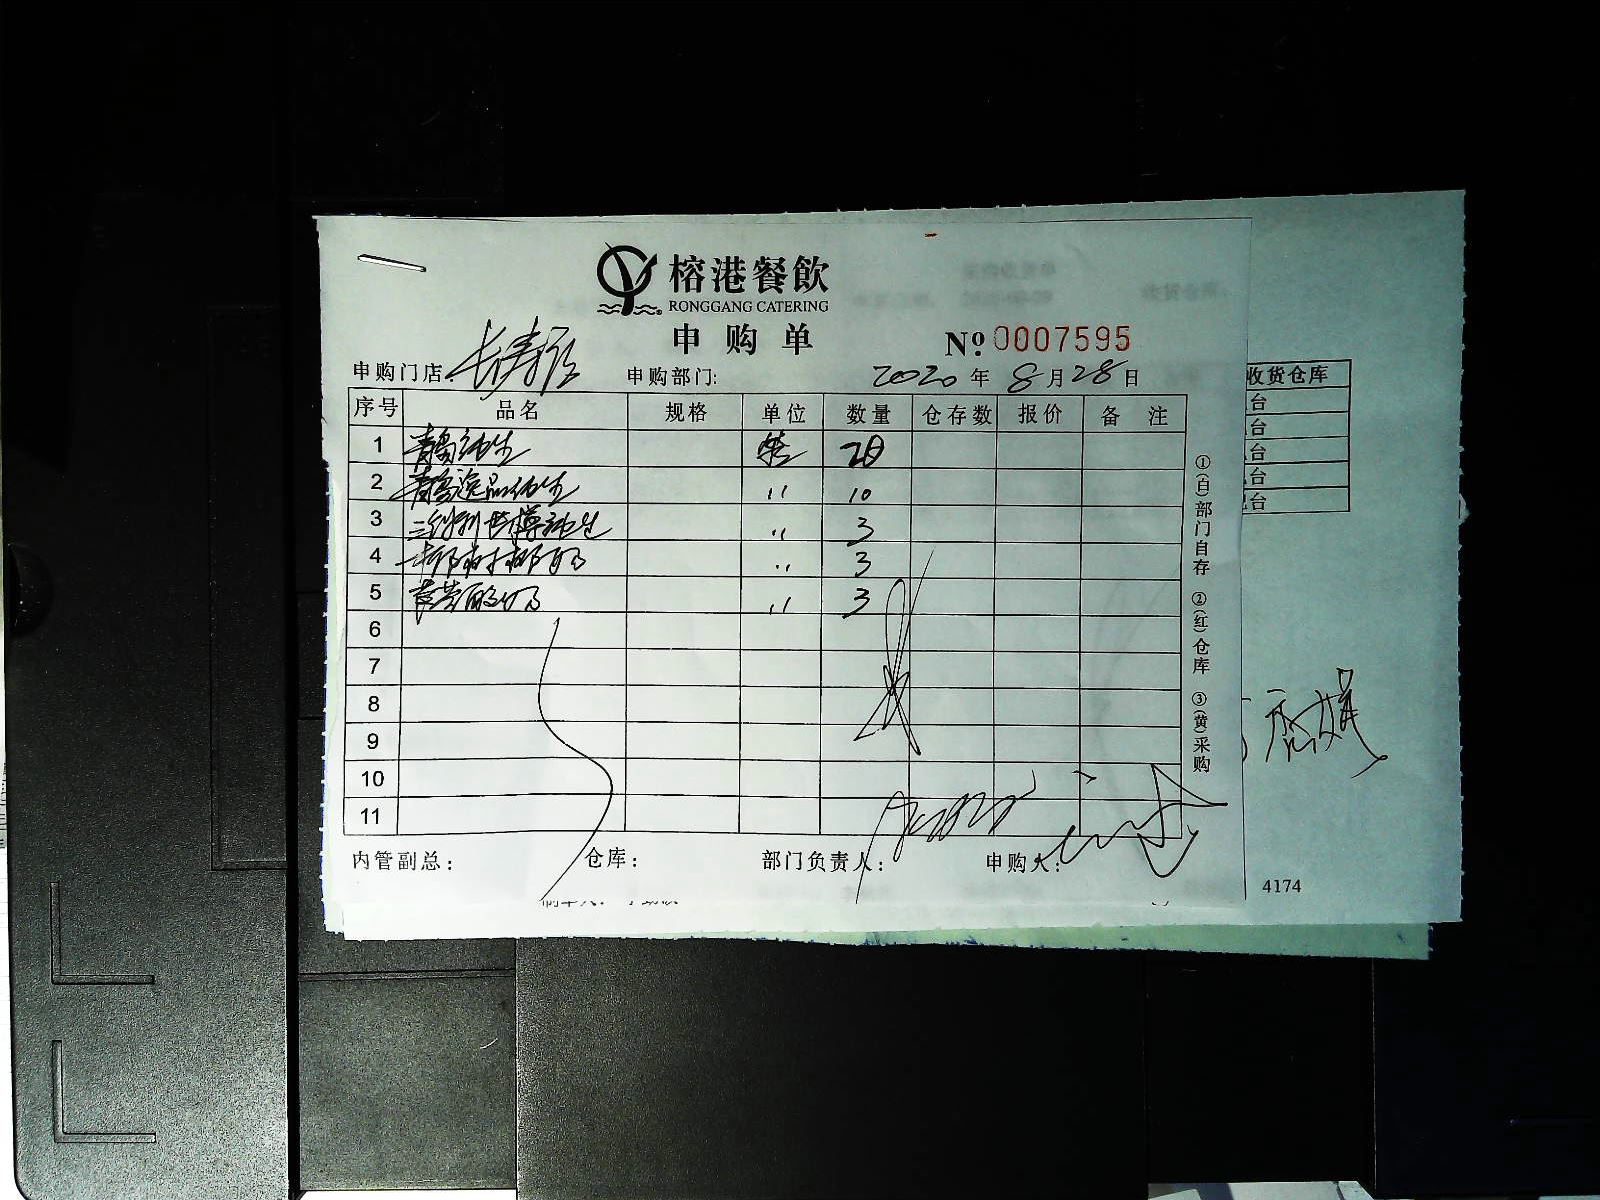 榕港餐飲
RONGGANG CATERING
申购单
№ 0007595
申购门店: 长寿路 申购部门: 2020 年 8 月 28 日
序号 品名 规格 单位 数量 仓存数 报价 备 注
1 青岛纯生 箱 20
2 青岛逸品纯生 〃 10
3 〃 3
4 〃 3
5 〃 3
6
7
8
9
10
11
内管副总: 仓库: 部门负责人: 申购人:
①(白)部门自存 ②(红)仓库 ③(黄)采购
收货仓库
台
台
台
台
台
4174